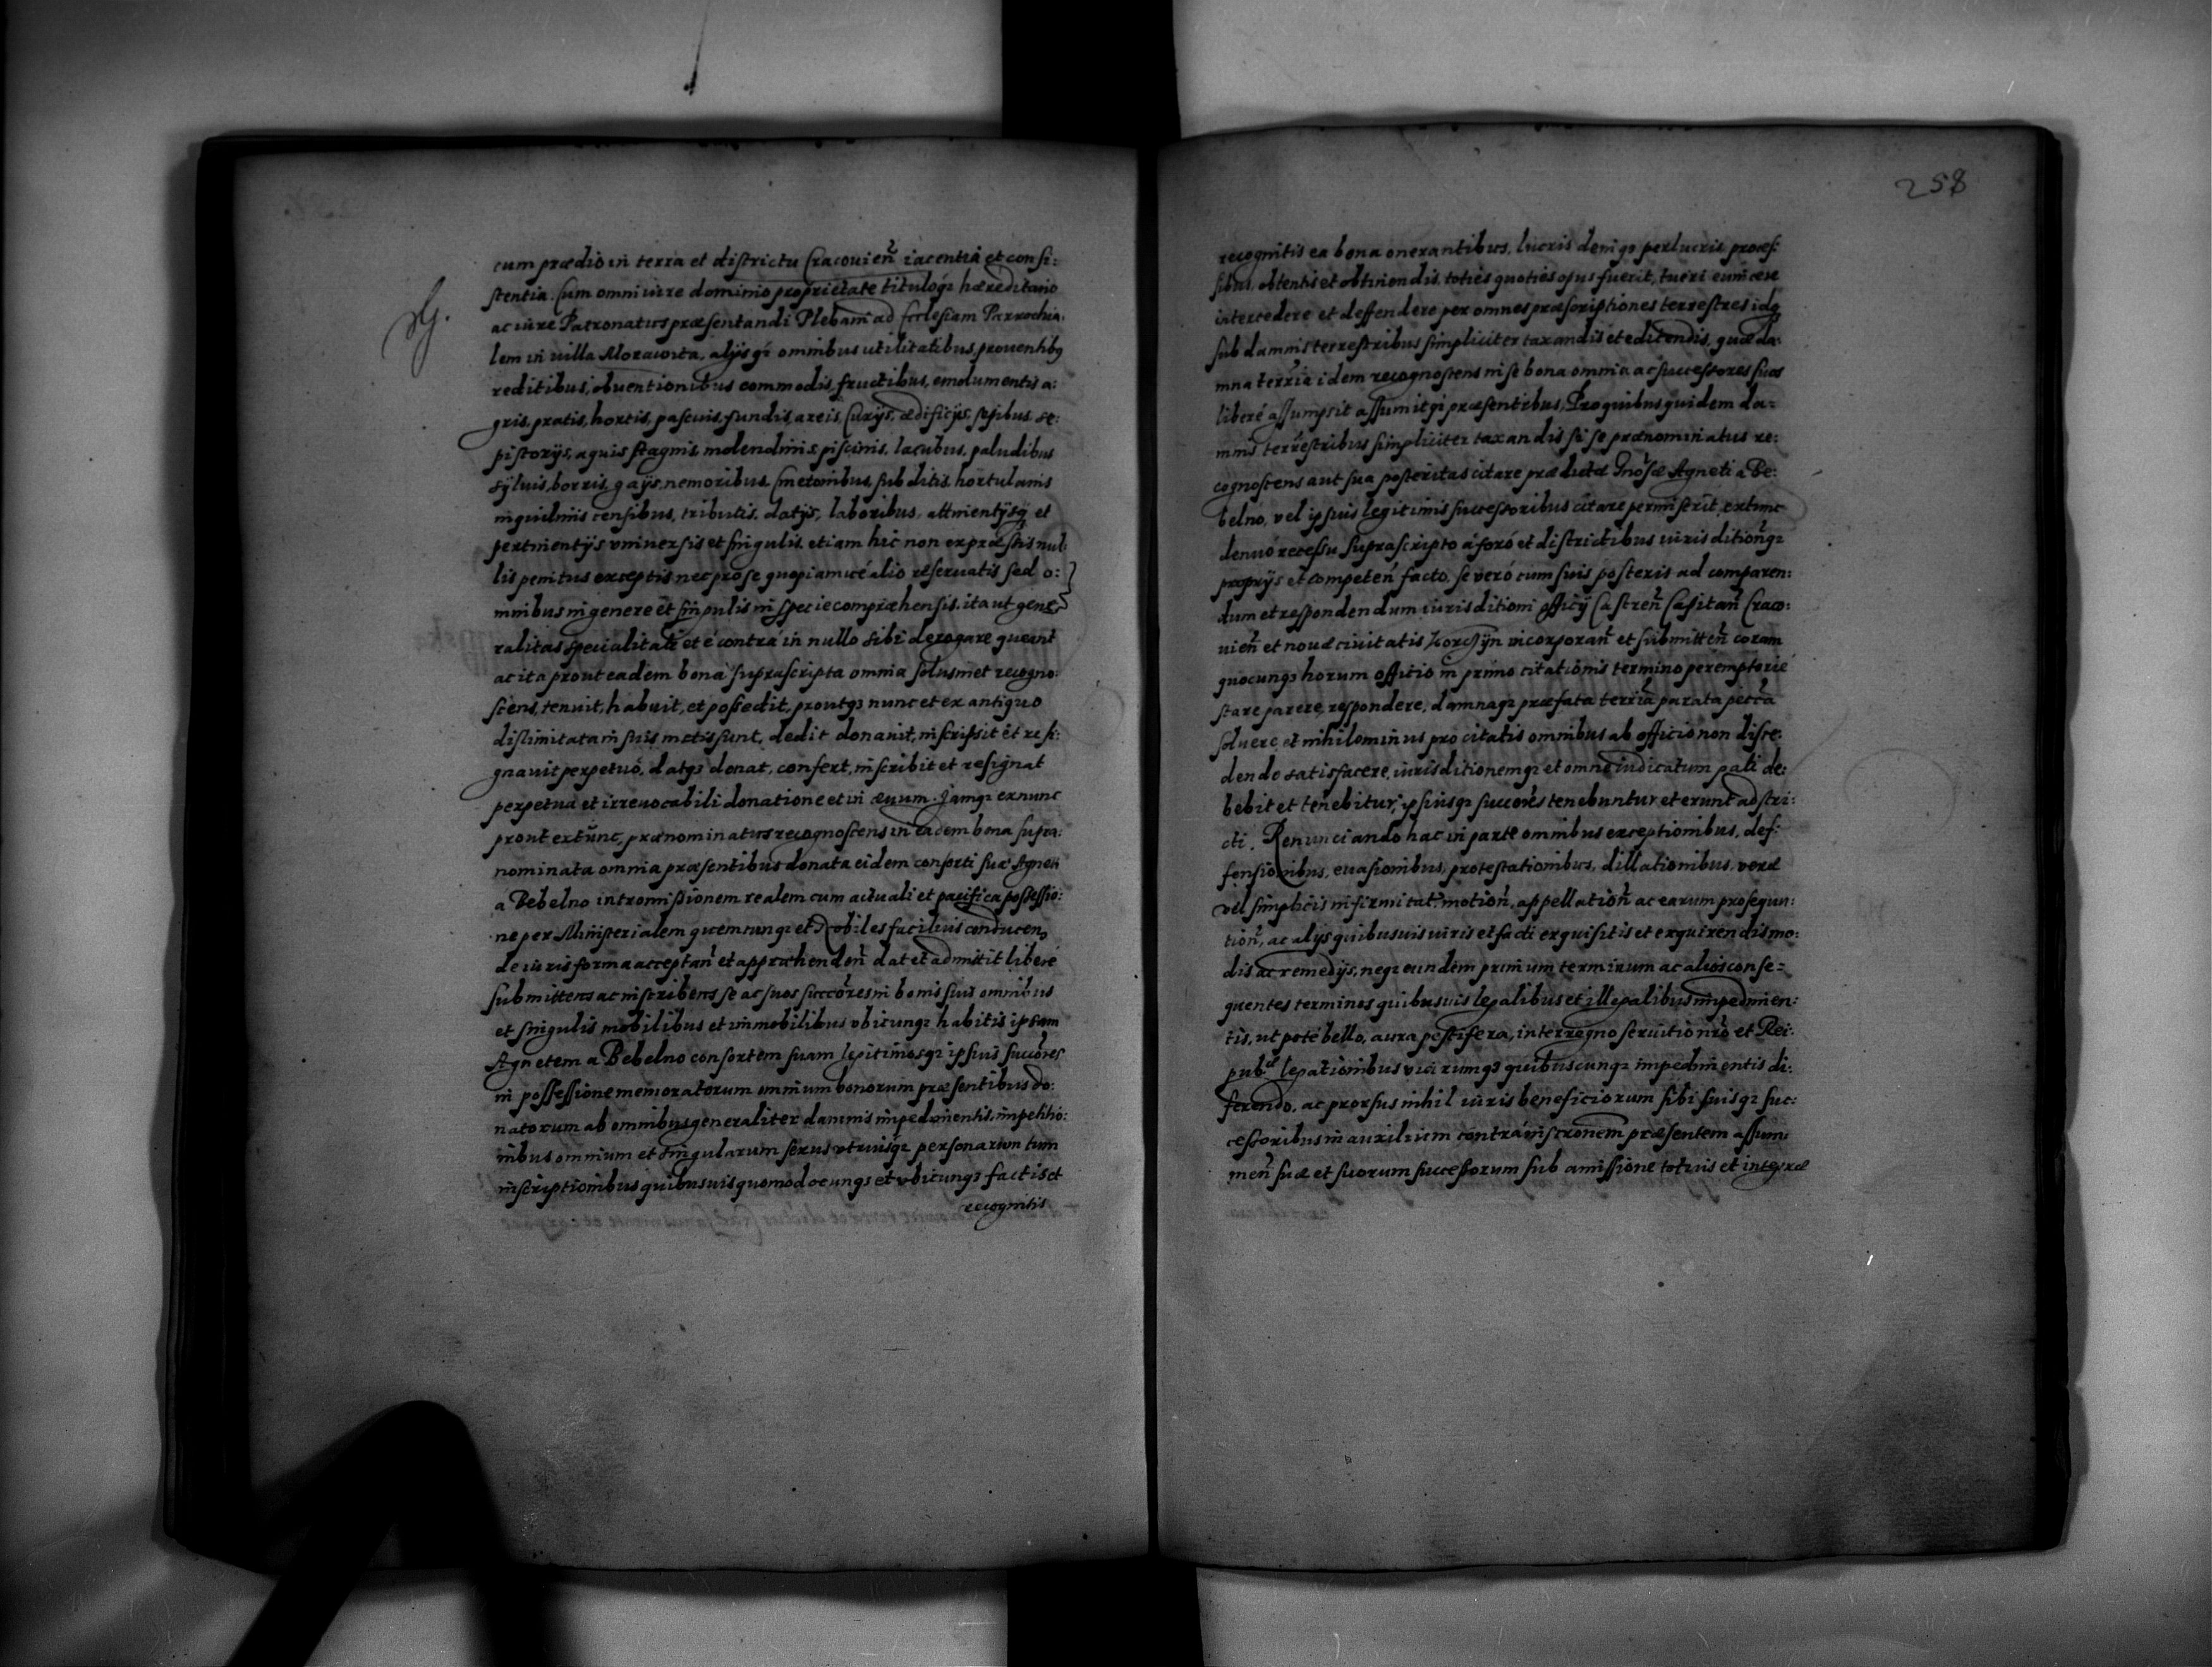 cum prædio in terra et districtu Cracovień iacentia et consi:
stentia. Cum omni iure dominio proprietate tituloqȝ hæreditario
ac iure Patronatus præsentandi Plebanum ad Ecclesiam Parrochia:
lem in villa Morawica, alijsqȝ omnibus utilitatibus, prouentibȝ
reditibus, obuentionibus commodis, fructibus, emolumentis a:
gris, pratis, hortis, pascuis, fundis, areis, Curijs, ædificijs, sepibus se:
pistorijs, aquis stagnis, molendinis piscinis, lacubus, paludibus
syluis, borris, gays, nemoribus, Cmetonibus, subditis, hortulanis
inquilinis censibus, tributis, datijs, laboribus, attinentijsqȝ et
pertinentijs vniuersis et singulis, etiam hic non expræssis nul:
lis penitus exceptis nec pro se quopiam ve alio reseruatis sed o:
mnibus in genere et singulis in specie compræhensis, ita ut gene:
ralitas specialitati et e contra in nullo sibi derogare queant
ac ita prout eadem bona suprascripta omnia solusmet recogno:
scens, tenuit, habuit, et possedit, proutqȝ nunc et ex antiquo
dislimitata in suis metis sunt, dedit donauit, inscripsit et resi:
gnauit perpetuo, datqȝ donat, confert, inscribit et resignat
perpetua et irreuocabili donatione et in æuum. Jamqȝ exnunc
prout extunc, prænominatus recognoscens in eadem bona supra:
nominata omnia præsentibus donata eidem consorti suæ Agneti
a Bebelno intromissionem realem cum actuali et pacifica possessio:
ne per Ministerialem quemcunqȝ et Nobiles facilius conducen
de iuris forma acceptań et appræhendeń dat et admittit libere
submittens ac inscribens se ac suos succōres in bonis suis omnibus
et singulis mobilibus et immobilibus vbicunqȝ habitis ipsam
Agnetem a Bebelno consortem suam legitimosqȝ ipsius succōres
in possessione memoratorum omnium bonorum præsentibus do:
natorum ab omnibus generaliter damnis impedimentis, impetitio:
nibus omnium et singularum sexus vtriusqȝ personarum tum
inscriptionibus quibusuis quomodocunqȝ et vbicunqȝ factis et
recognitis
258
recognitis ea bona onerantibus, lucris deniqȝ perlucris proces:
sibus, obtentis et obtinendis, toties quoties opus fuerit, tueri euincere
intercedere et deffendere per omnes præscriptiones terrestres idqȝ
sub damnis terrestribus simpliciter taxandis et editendis, quæ da:
mna terrīa idem recognoscens in se bona omnia ac successores suos
liberé assumpsit assumitqȝ præsentibus, Pro quibus quidem da:
mnis terrestribus simpliciter taxandis si se prænominatus re:
cognoscens aut sua posteritas citare prædictæ Gnōsæ Agneti a Be:
belno, vel ipsius legitimis successoribus citare permiserit, extunc
denuó recessu suprascripto a foro et districtibus iurisditionqȝ
proprijs et competeń facto, se vero cum suis posteris ad comparen:
dum et respondendum iurisditioni officij Castreń Capitań Craco:
uień et nouæ ciuitatis Korczyn incorporań et submitteń coram
quocunqȝ horum officio in primo citationis termino peremptorie
stare parere, respondere, damnaqȝ præfata terrīa parata pecīa
soluere et nihilominus pro citatis omnibus ab officio non disce:
dendo satisfacere, iurisditionemqȝ et omne iudicatum pati de:
bebit et tenebitur, ipsiusqȝ succōres tenebuntur et erunt adstri:
cti. Renunciando hac in parte omnibus exceptionibus, def:
fensionibus, euasionibus, protestationibus, dillationibus, veræ
vel simplicis infirmitat. motioń, appellatioń ac earum prosequu:
tioń, ac alijs quibusuis iuris et facti exquisitis et exquirendis mo:
dis ac remedijs, neqȝ eundem primum terminum ac alios conse=
quentes terminos quibusuis legalibus et illegalibus impedimen:
tis, ut pote bello, aura pestifera, interregno seruitio nrō et Rei:
pub. legationibus quibuscunqȝ impedimentis di:
fferendo, ac prorsus nihil iuris beneficiorum sibi suisqȝ suc:
cessoribus in auxilium contra inscrōnem præsentem assum
meń suæ et suorum successorum sub amissione totius et integræ